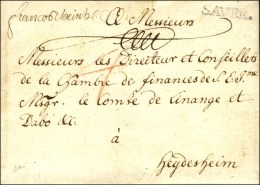 francotrhinh. A Messieurs
SAVRE
Messieurs les Directeur et Conseillers
de la Chambre de finances de S. E. S.me
Msgr. le Comte de Linange et
Dabo &c.
à
heydesheim